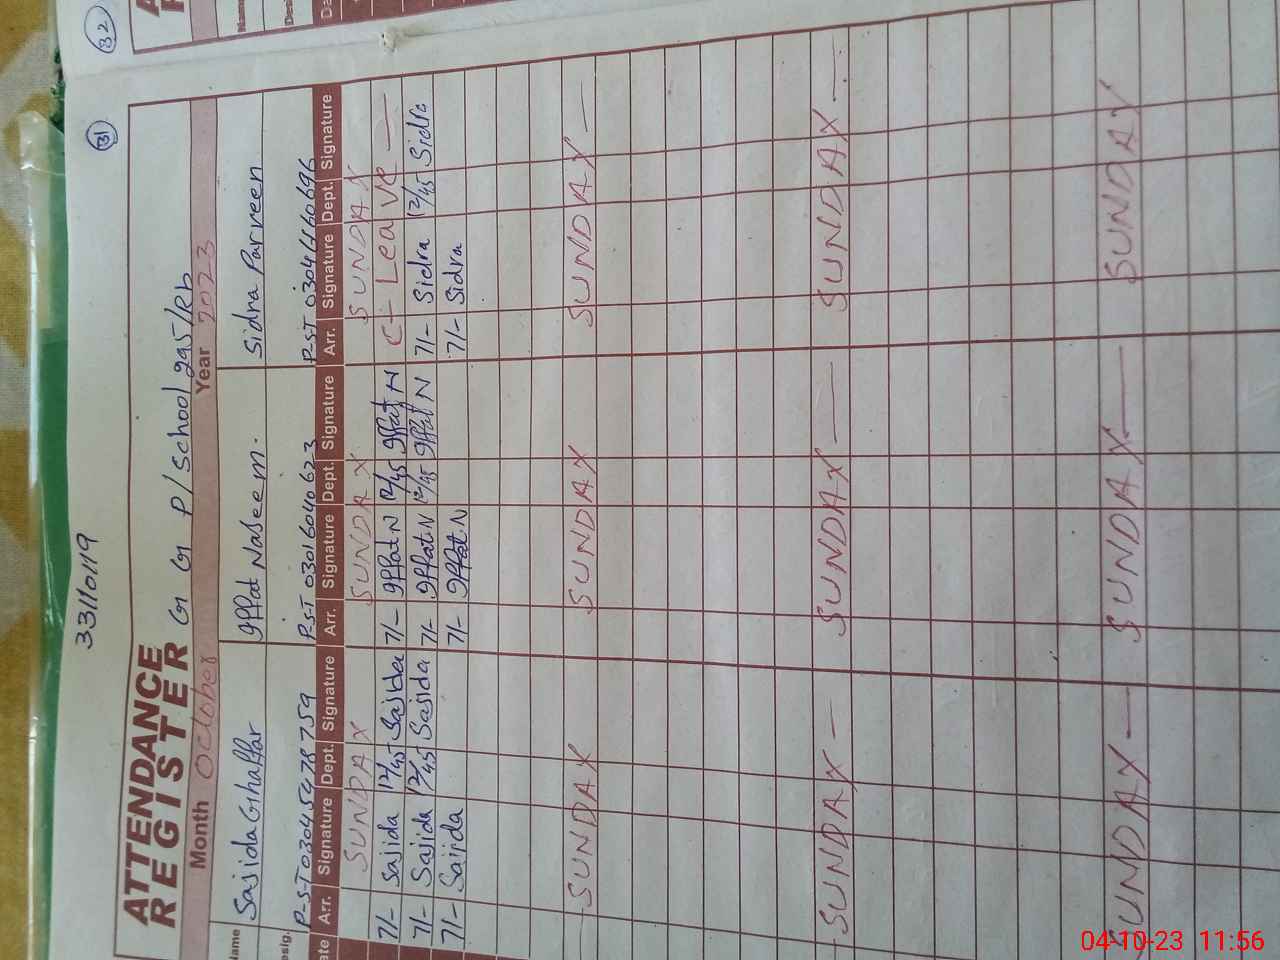 32
31
33110119
ATTENDANCE
REGISTER
G G P/School 295/Rb
Month October Year 2023
Name Sajida Ghaffar Iffat Naseem. Sidra Parveen
Desig. P-S-T 03045478759 P-S-T 03016040623 P-S-T 03041160696
Date Arr. Signature Dept. Signature Arr. Signature Dept. Signature Arr. Signature Dept. Signature
SUNDAY SUNDAY SUNDAY
7/- Sajida 12/45 Sajida 7/- Iffat.N 12/45 Iffat N C- Leave
7/- Sajida 12/45 Sajida 7/- Iffat.N 12/45 Iffat N 7/- Sidra 12/45 Sidra
7/- Sajida 7/- Iffat.N 7/- Sidra
SUNDAY SUNDAY SUNDAY
SUNDAY SUNDAY SUNDAY
SUNDAY SUNDAY SUNDAY
04-10-23 11:56